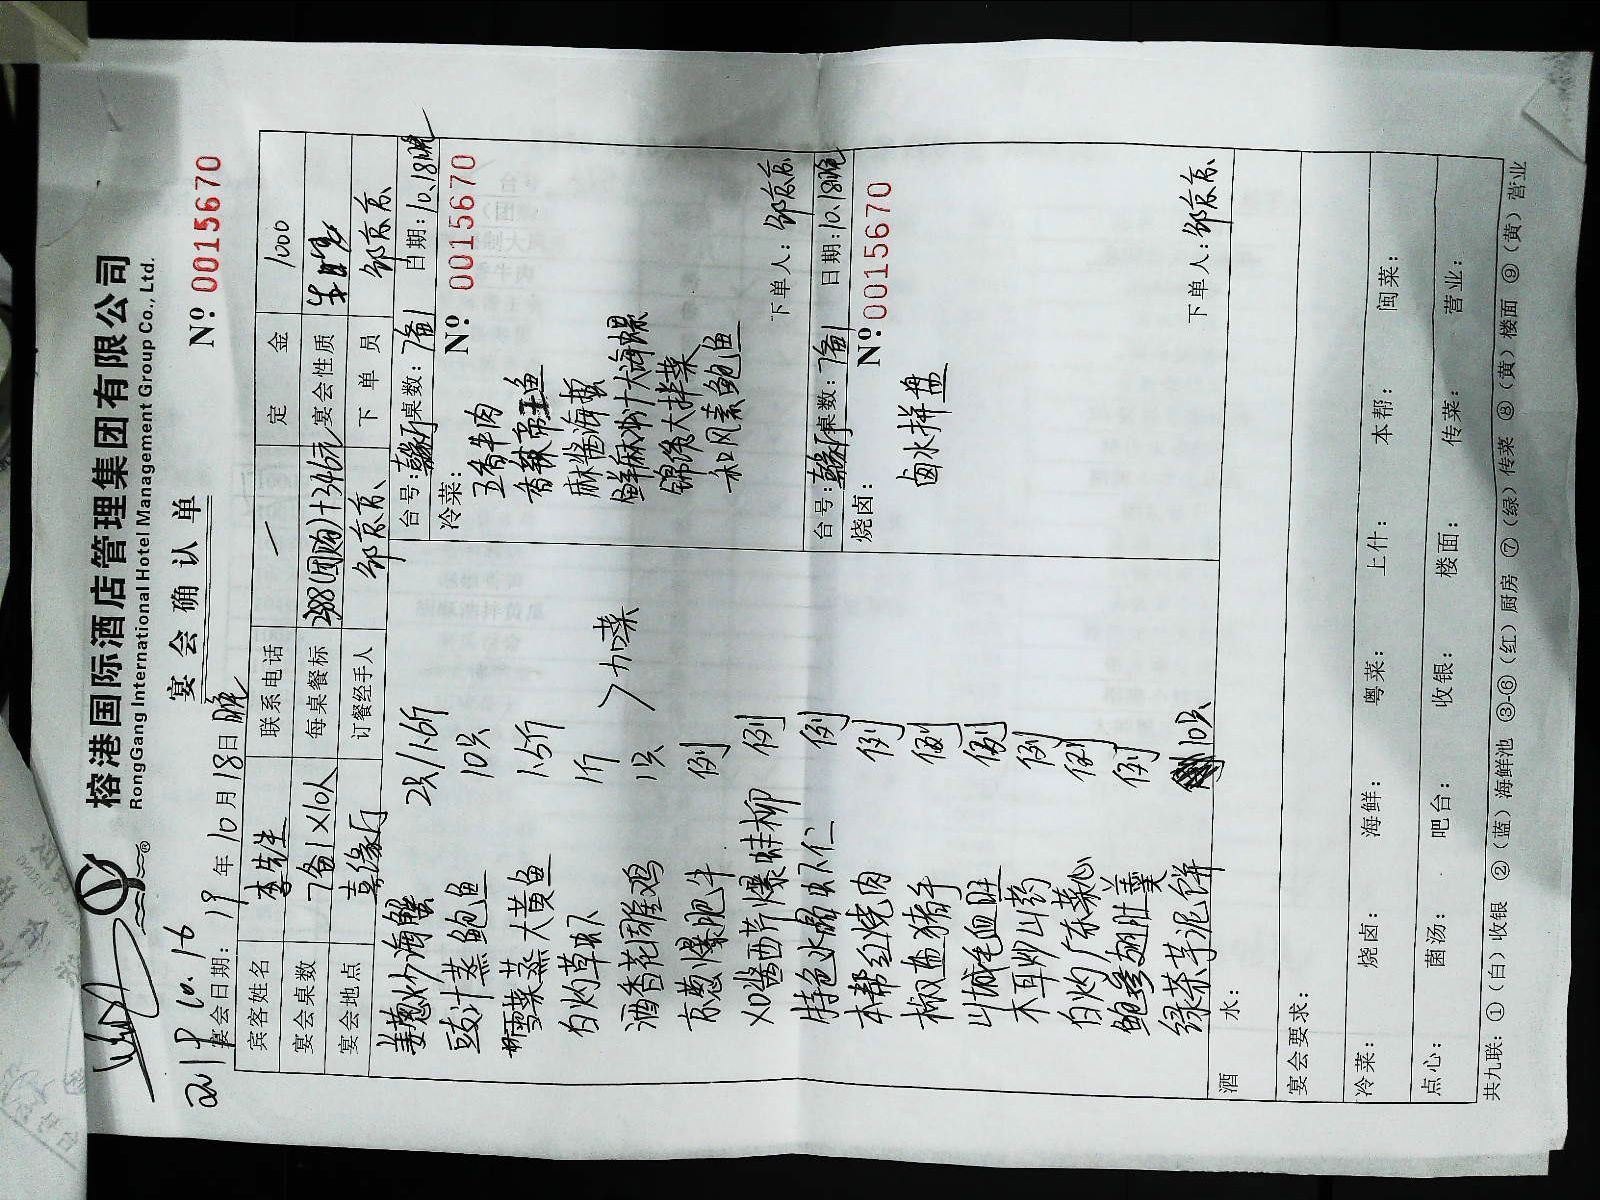 榕港国际酒店管理集团有限公司
RongGang International Hotel Management Group Co., Ltd.
宴会确认单
2019 10.16
宴会日期:19年10月18日晚 Nº 0015670
宾客姓名 李先生 联系电话 一 定金 1000
宴会桌数 7备1×10人 每桌餐标 2988(团购)+346元 宴会性质 生日宴
宴会地点 喜缘厅 订餐经手人 邹京京 下单员 邹京京
姜葱炒海蟹 2只/1.6斤
豉汁蒸鲍鱼 10只
雪菜蒸大黄鱼 1.5斤
白灼草虾 1斤
酒香花雕鸡 1只 加菜
京葱爆肥牛 例
XO酱西芹爆蚌柳 例
特色水晶虾仁 例
本帮红烧肉 例
椒盐猪手 例
山城毛血旺 例
木耳炒山药 例
白灼广东菜心 例
鲍参翅肚羹 例
绿茶芋泥饼 10只
台号:喜缘厅 桌数:7备1 日期:10.18晚
冷菜: Nº 0015670
五香牛肉
香辣帝王鱼
麻酱海蜇
鲜麻汁大海螺
锦绣大拌菜
和风素鲍鱼
下单人:邹京京
台号:喜缘厅 桌数:7备1 日期:10.18晚
烧卤: Nº 0015670
卤水拼盘
下单人:邹京京
酒水:
宴会要求:
冷菜: 烧卤: 海鲜: 粤菜: 上什: 本帮: 闽菜:
点心: 菌汤: 吧台: 收银: 楼面: 传菜: 营业:
共九联:①(白)收银 ②(蓝)海鲜池 ③-⑥(红)厨房 ⑦(绿)传菜 ⑧(黄)楼面 ⑨(黄)营业